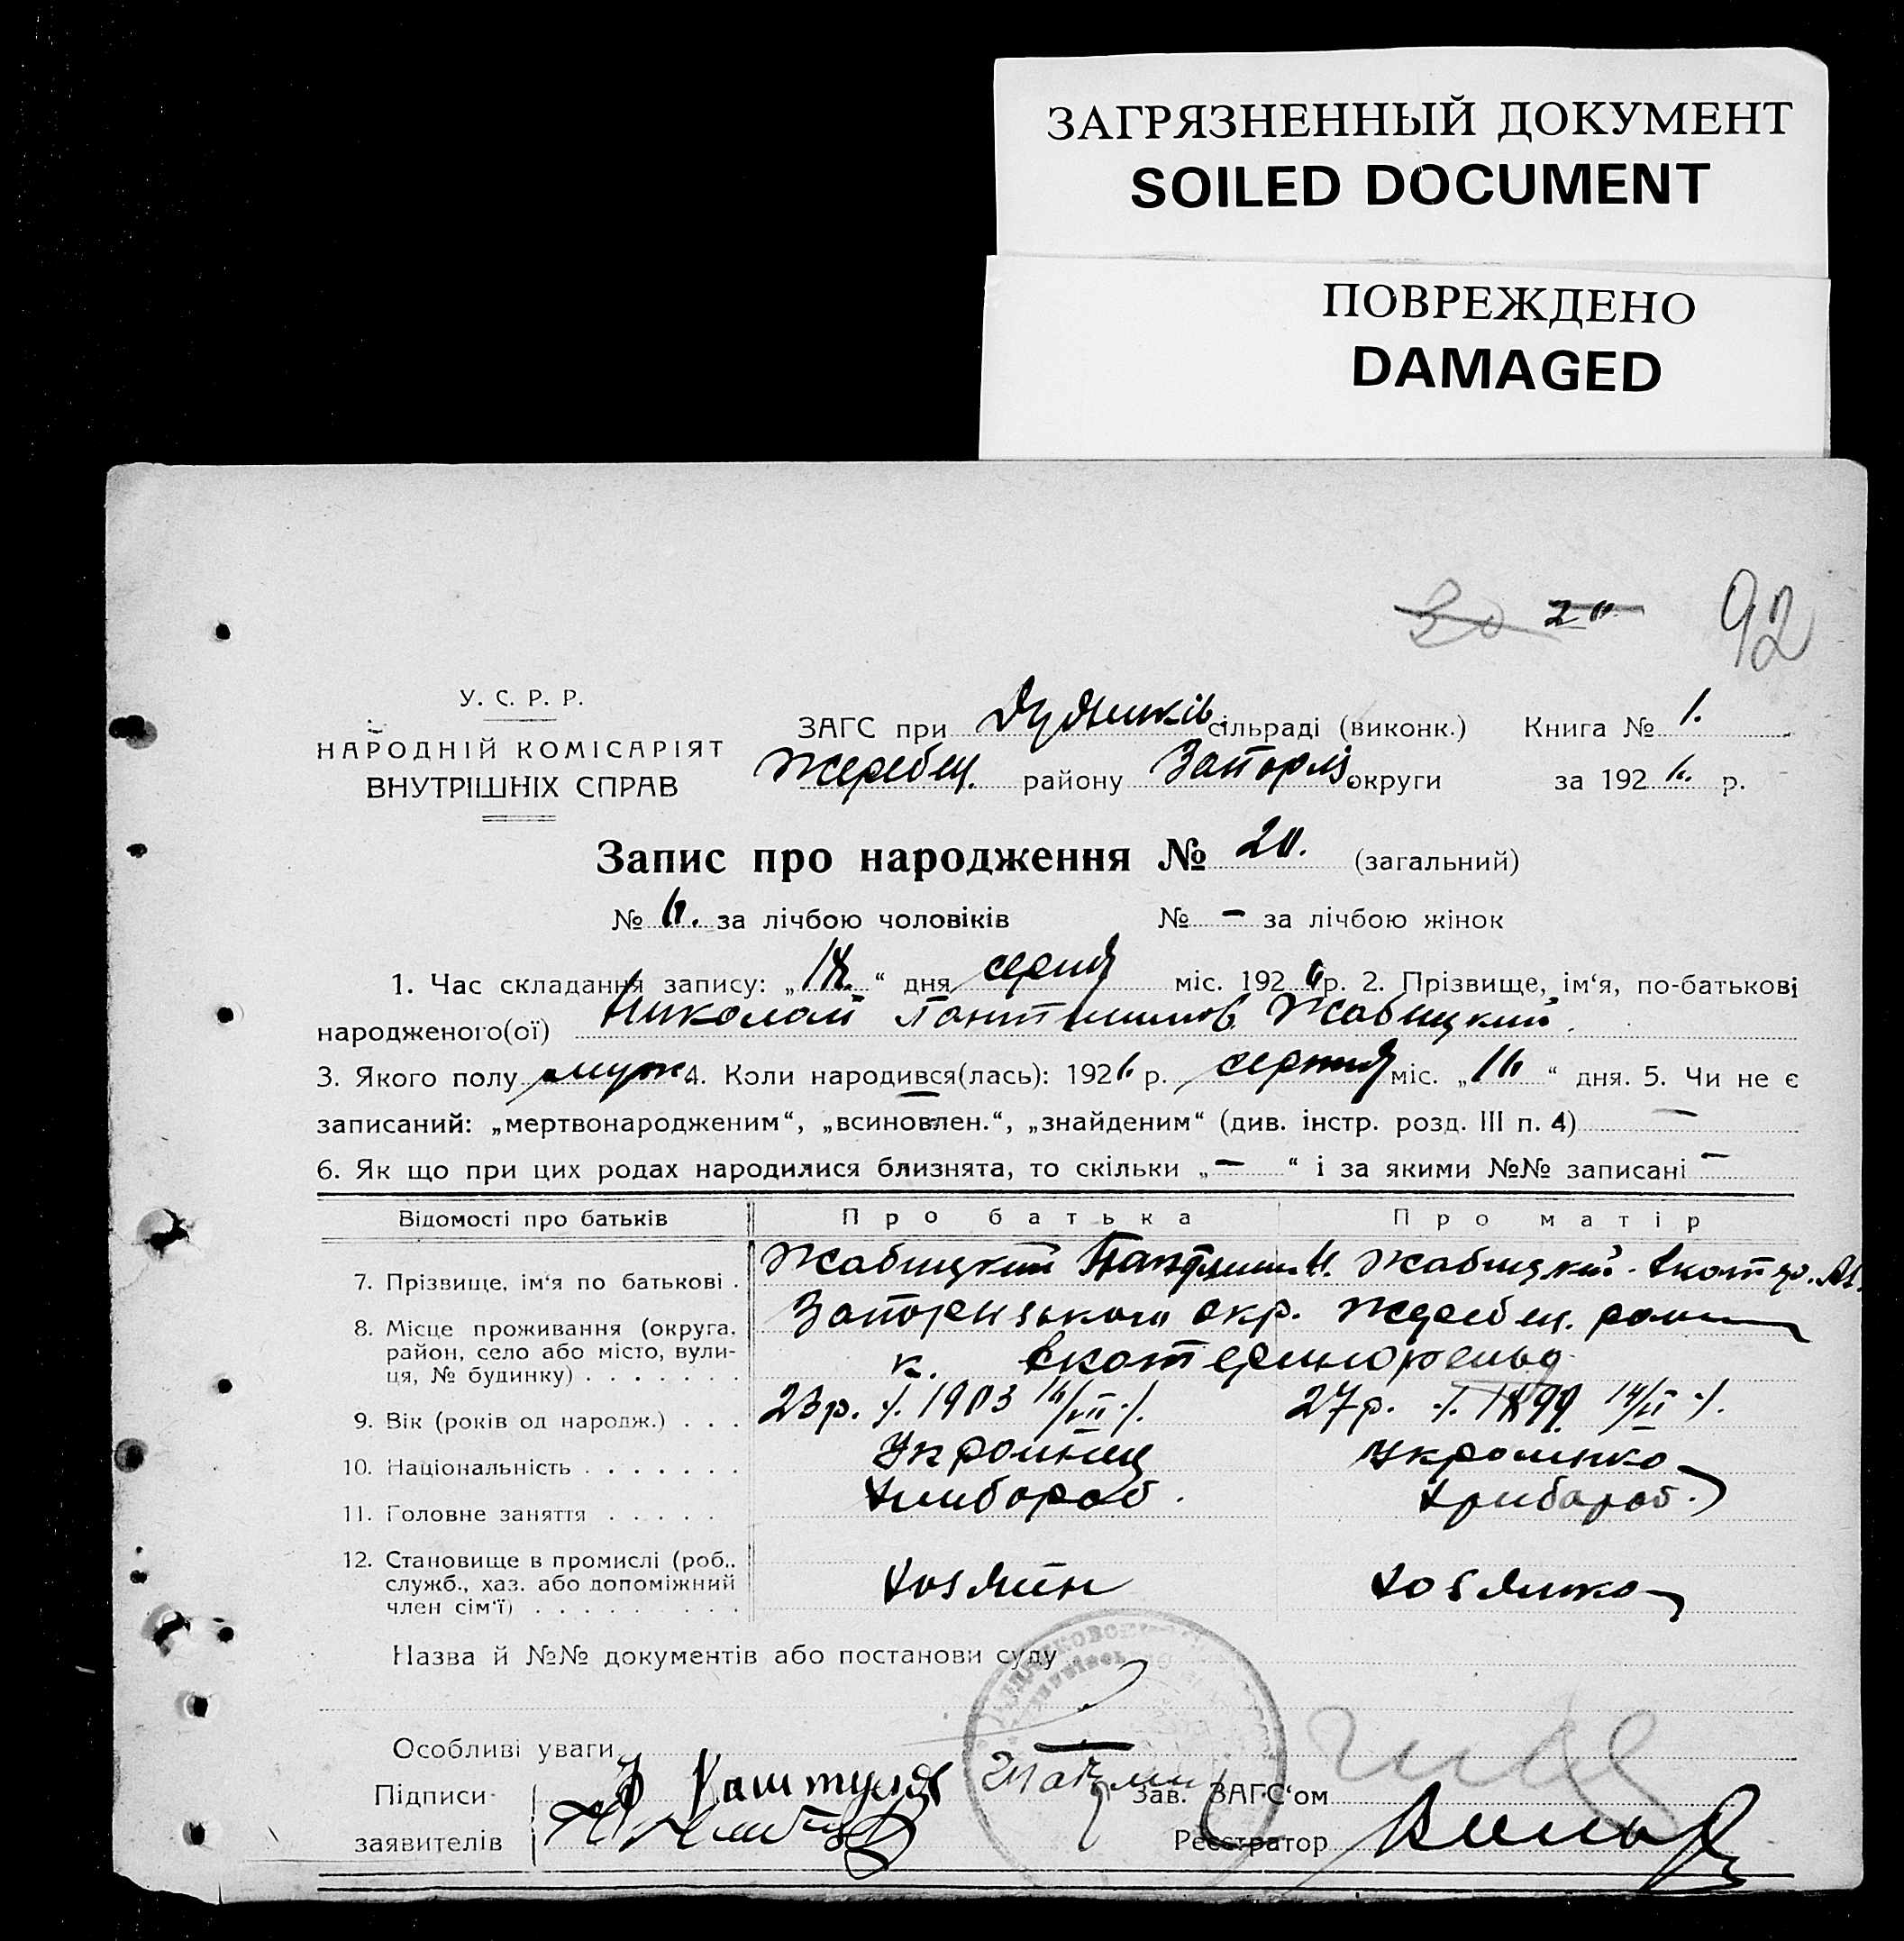 ЗАГРЯЗНЕННЫЙ ДОКУМЕНТ
SOILED DOCUMENT
ПОВРЕЖДЕНО
DAMAGED
92
У. С. Р. Р.
НАРОДНІЙ КОМІСАРІЯТ
ВНУТРІШНІХ СПРАВ
ЗАГС при Дудників. сільраді (виконк.) Книга № 1.
Жеребец. району Запоріз. округи за 1926. р.
Запис про народження № 20. (загальний)
№ за лічбою чоловіків № – за лічбою жінок
1. Час складання запису: „18.“ дня серпня міс. 1926 р. 2. Прізвище, ім‘я, по-батькові
народженого(ої) Николай Пантилимов. Жабицкий.
3. Якого полу муж 4. Коли народився(лась): 1926 р. серпня міс. „16“ дня. 5. Чи не є
записаний: „мертвонародженим“, „всиновлен.“, „знайденим“ (див. інстр. розд. III п. 4) —
6. Як що при цих родах народилися близнята, то скільки „–“ і за якими №№ записані –
Відомості про батьків Про батька Про матір
7. Прізвище, ім‘я по батькові . Жабицкий Пантилим. Н. Жабицкий Екатер.
8. Місце проживання (округа, район, село або місто, вулиця, № будинку) . . . . . . . Запорізького окр. Жеребец. район
к.
9. Вік (років од народж.) . . . 23 р. 1903 16/VII 27 р. 1899 14/II
10. Національність . . . . . . . Українец Українка
11. Головне заняття . . . . . Хлибороб. Хлибороб.
12. Становище в промислі (роб., служб., хаз. або допоміжний член сім‘ї) . . . . . . . . . Хозяин Хозяика
Назва й №№ документів або постанови суду
Особливі уваги
Підписи
заявителів
Зав. ЗАГС‘ом
Реєстратор